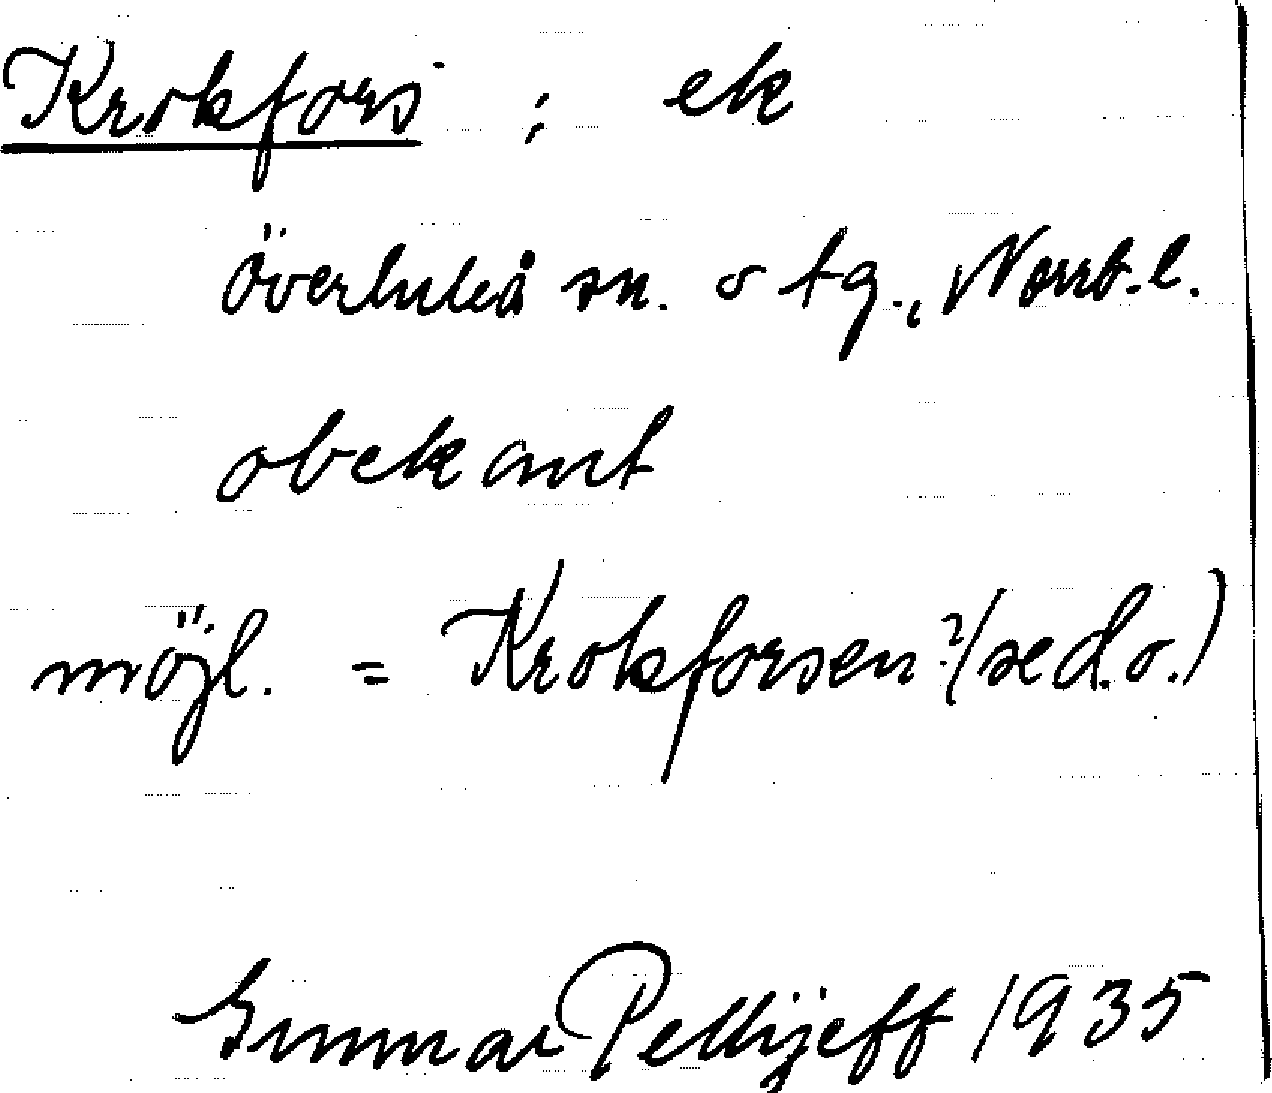 Krokfors ; ek
överluleå sn. o tg., Norrb.l.
obekant
möjl. = Krokforsen? (se d.o.)
Gunnar Pellijeff 1935